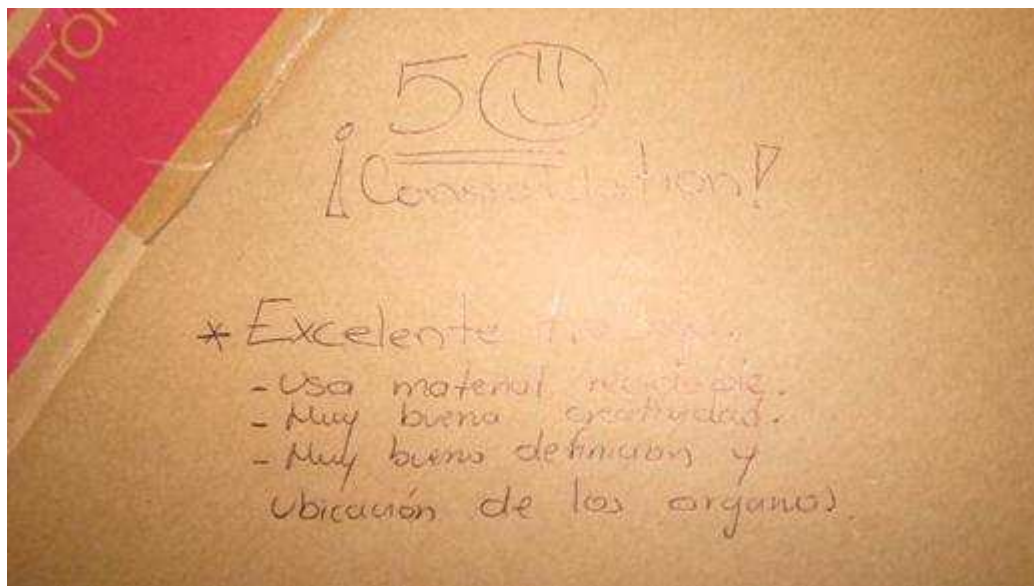 ONITO
50
¡Congratulation!
* Excelente trabajo.
- Usa material reciclable.
- Muy buena creatividad.
- Muy buena definicion y
ubicación de los organos.